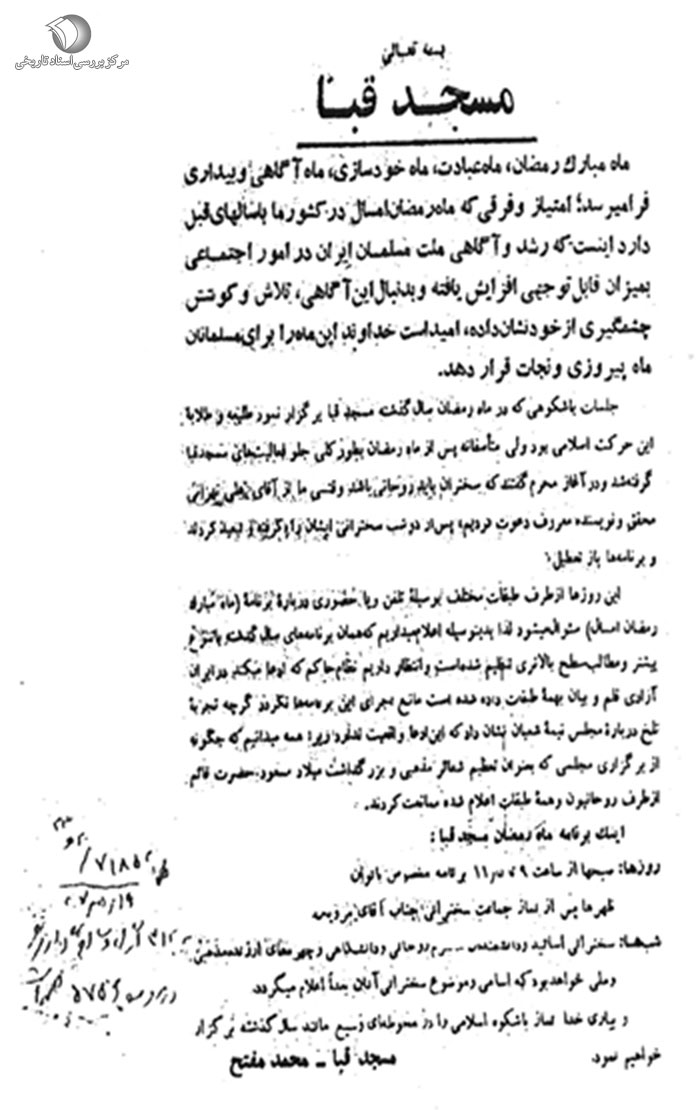 مرکز بررسی اسناد تاریخی
بسمه تعالی
مسجد قبا
ماه مبارك رمضان، ماه عبادت، ماه خودسازی، ماه آگاهی و بیداری
فرا میرسد؛ امتیاز و فرقی که ماه رمضان امسال در کشور ما با سالهای قبل
دارد اینست که رشد و آگاهی ملت مسلمان ایران در امور اجتماعی
بمیزان قابل توجهی افزایش یافته و بدنبال این آگاهی، تلاش و کوشش
چشمگیری از خود نشان داده، امید است خداوند این ماه را برای مسلمانان
ماه پیروزی و نجات قرار دهد.
جلسات باشکوهی که در ماه رمضان سال گذشته مسجد قبا برگزار نمود طلیعه و طلایهٔ
این حرکت اسلامی بود ولی متأسفانه پس از ماه رمضان بطور کلی جلو فعالیت‌های مسجد قبا
گرفته شد و در آغاز محرم گفتند که سخنران باید روحانی باشد وقتی ما از آقای
محقق و نویسنده معروف دعوت کردیم، پس از دو شب سخنرانی ایشان را گرفته و تبعید کردند
و برنامه‌ها باز تعطیل!
این روزها از طرف طبقات مختلف بوسیلهٔ تلفن و یا حضوری دربارهٔ برنامهٔ (ماه مبارك
رمضان امسال) سئوال میشود لذا بدینوسیله اعلام میداریم که همان برنامه‌های سال گذشته با تنوع
بیشتر و مطالب سطح بالاتری تنظیم شده است و انتظار داریم نظام حاکم که ادعا میکند در ایران
آزادی قلم و بیان بهمهٔ طبقات داده شده است مانع اجرای این برنامه‌ها نگردد گرچه تجربهٔ
تلخ دربارهٔ مجلس نیمهٔ شعبان نشان داد که این ادعا واقعیت ندارد زیرا همه میدانیم که چگونه
از برگزاری مجلسی که بعنوان تعظیم شعائر مذهبی و بزرگداشت میلاد مسعود حضرت قائم
از طرف روحانیون و همهٔ طبقات اعلام شده ممانعت کردند.
اینك برنامه ماه رمضان مسجد قبا:
روزها: صبحها از ساعت ۹ تا ۱۱ برنامه مخصوص بانوان
ظهرها پس از نماز جماعت سخنرانی جناب آقای
شب‌ها: سخنرانی اساتید و دانشمندان روحانی و دانشگاهی و چهره‌های ارزنده مذهبی
و ملی خواهد بود که اسامی و موضوع سخنرانی آنان بعداً اعلام میگردد.
و بیاری خدا نماز باشکوه اسلامی را در محوطه‌ای وسیع مانند سال گذشته برگزار
خواهیم نمود.
مسجد قبا ـ محمد مفتح